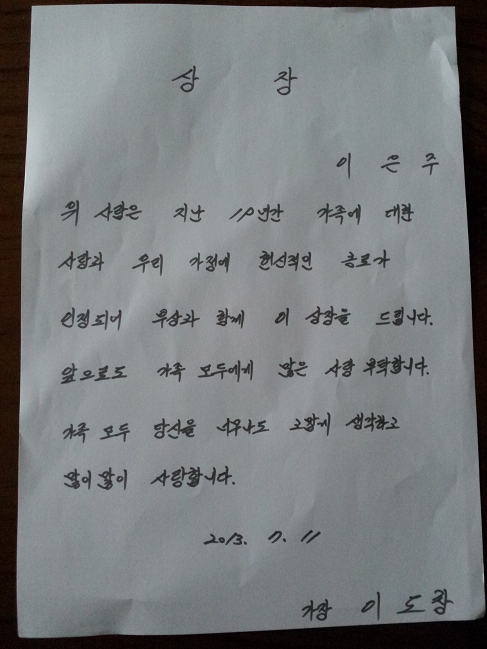 상 장
이 은 주
위 사람은 지난 10년간 가족에 대한
사랑과 우리 가정에 헌신적인 공로가
인정되어 부상과 함께 이 상장을 드립니다.
앞으로도 가족 모두에게 많은 사랑 부탁합니다.
가족 모두 당신을 너무나도 고맙게 생각하고
많이많이 사랑합니다.
2013. 7. 11
가장 이 도